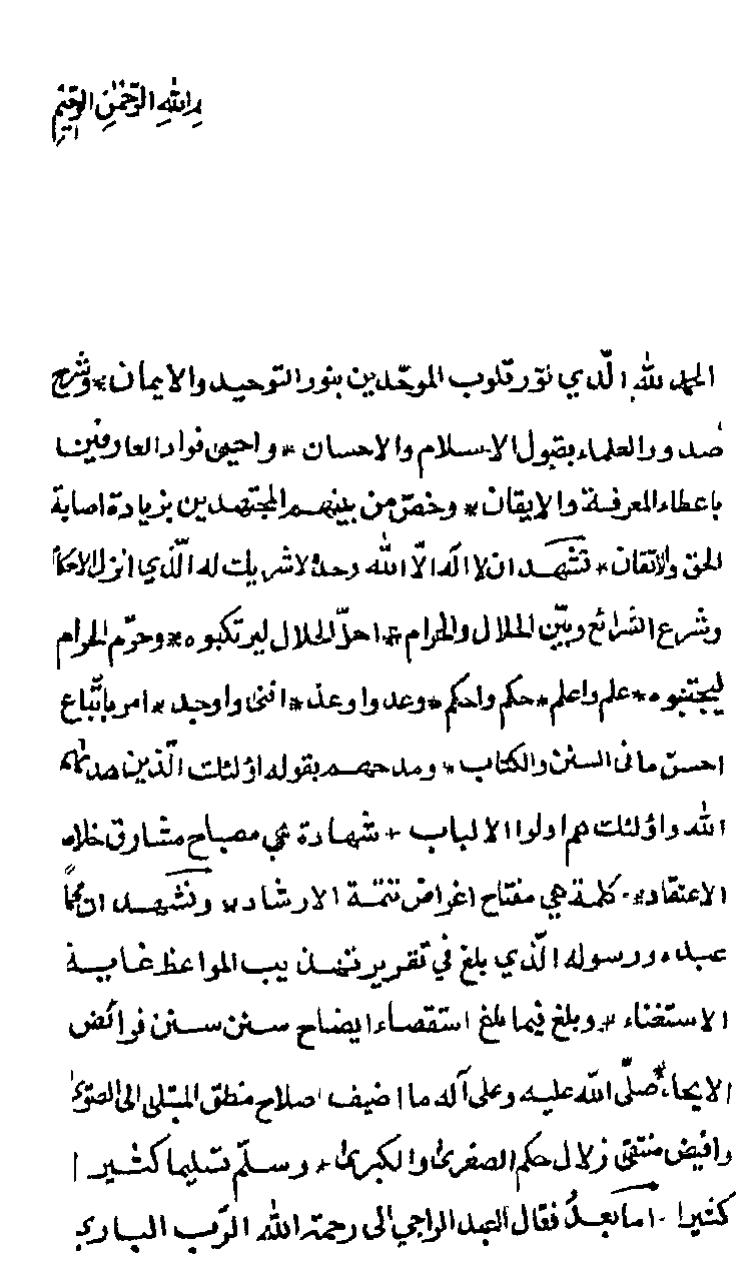 الله الرحمن الرحيم
الحمد لله الّذي نوّر قلوب الموحّدين بنور التوحيد والايمان * وشرح
صدور العلماء بقبول الاسلام والاحسان * واحيى فواد العارفين
باعطاء المعرفة والايقان * وخصّ من بينهم المجتهدين بزيادة اصابة
الحق والاتقان * نشهد ان لا اله الّا الله وحده لا شريك له الّذي انزل الاحكا
وشرع الشرائع وبيّن الحلال والحرام * احلّ الحلال ليرتكبوه * وحرّم الحرام
ليجتنبوه * علم واعلم * حكم واحكم * وعد واوعد * افنى واوجد * امر باتّباع
احسن ما فى السنن والكتاب * ومدحهم بقوله اولئك الّذين هديهم
الله واولئك هم اولوا الالباب * شهادة هي مصباح مشارق خلاصه
الاعتقاد * كلمة هي مفتاح اغراض تتمة الارشاد * ونشهد ان محمدا
عبده ورسوله الّذي بلغ في تقرير تهذيب المواعظ غاية
الاستغناء * وبلغ فيما بلغ استقصاء ايضاح سنن سنن فرائض
الايحاء * صلّى الله عليه وعلى آله ما اضيف اصلاح منطق المبتلى الى
وافيض منتقى زلال حكم الصغرى والكبرى * وسلّم تسليما كثيرا
كثيرا * اما بعد فقال العبد الراجي الى رحمة الله الرّب الباري